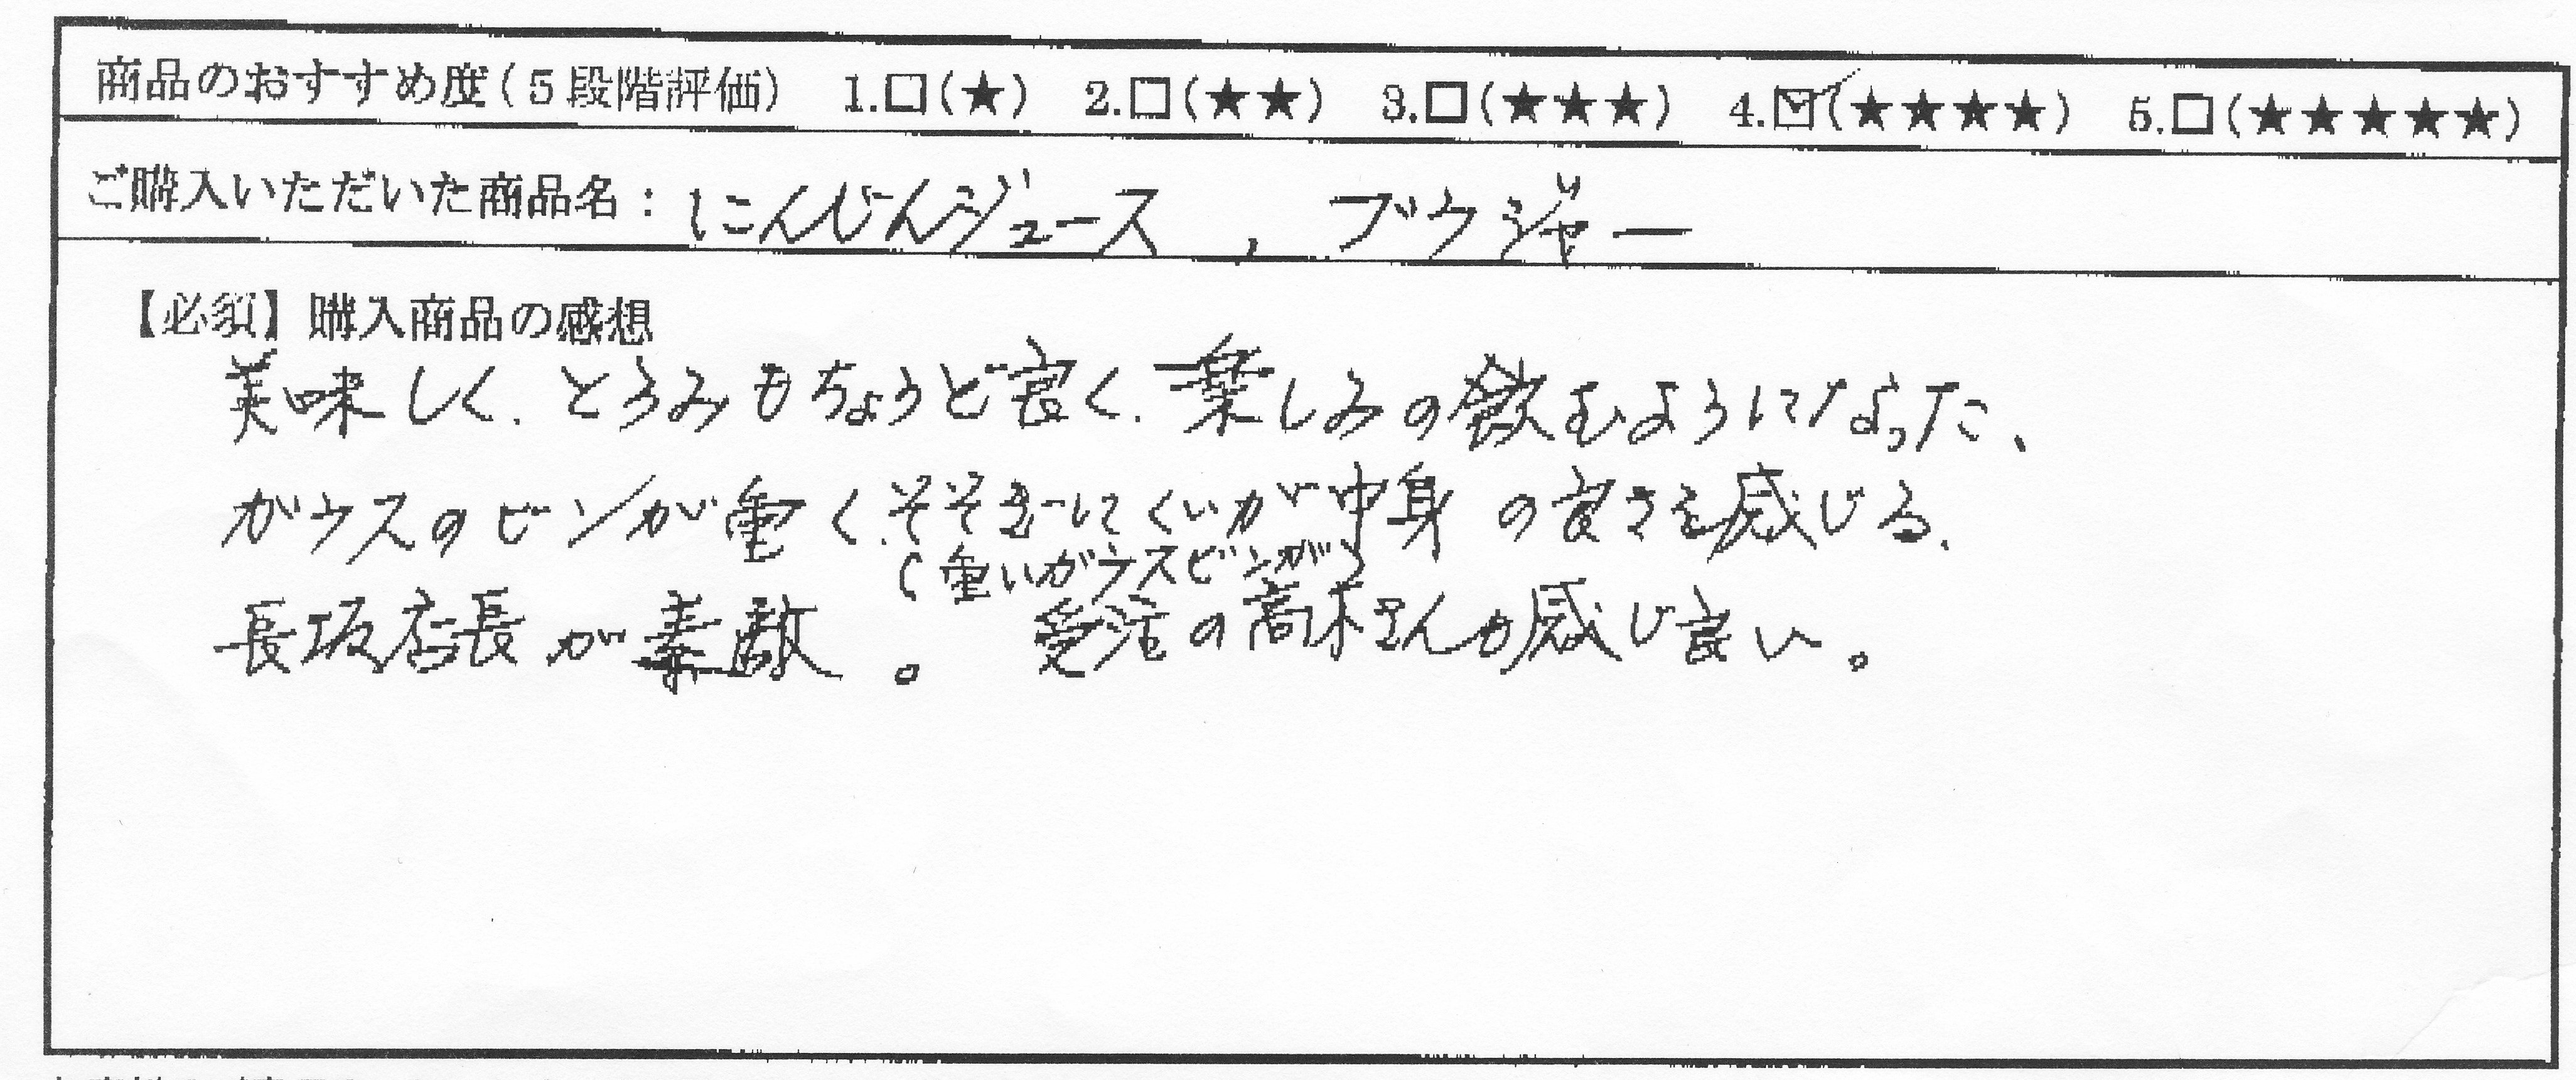 商品のおすすめ度(5段階評価) 1.□(★) 2.□(★★) 3.□(★★★) 4.☑(★★★★) 5.□(★★★★★)
ご購入いただいた商品名: にんじんジュース、ブラジャー
【必須】購入商品の感想
美味しく、とろみもちょうど良く、楽しみの飲むようになった、
ガラスのビンが重く、そそぎにくいが中身の良さを感じる、
(重いガラスビンが)
長坂店長が素敵。 受注の高木さんが感じ良い。